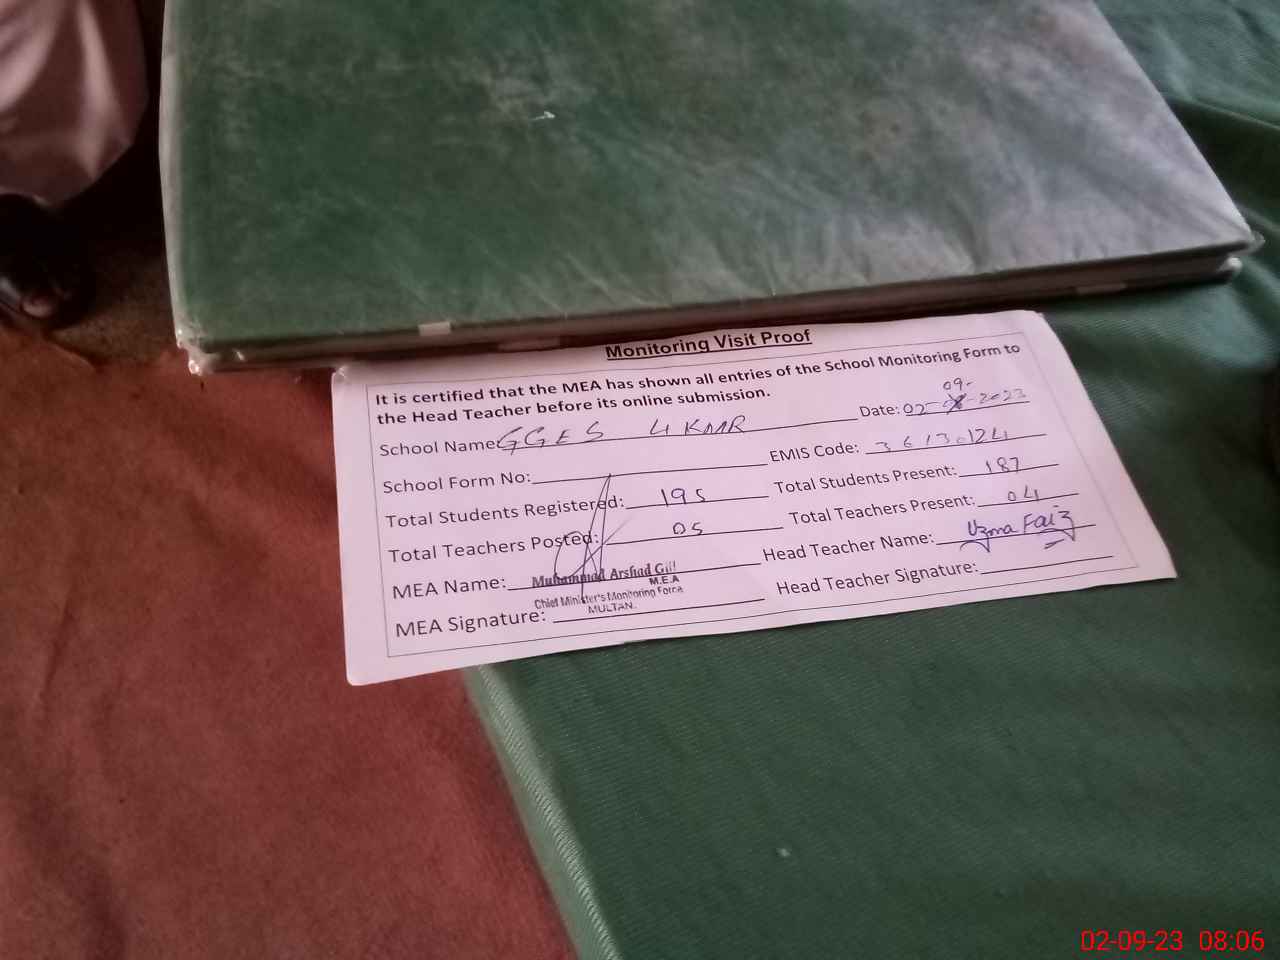 Monitoring Visit Proof
It is certified that the MEA has shown all entries of the School Monitoring Form to
the Head Teacher before its online submission.
School Name: GGES 4 KMR Date: 02-09-2023
School Form No: EMIS Code: 36130124
Total Students Registered: 195 Total Students Present: 187
Total Teachers Posted: 05 Total Teachers Present: 04
MEA Name: Muhammad Arshad Gill Head Teacher Name: Uzma Faiz
M.E.A
Chief Minister's Monitoring Force
MULTAN.
MEA Signature: Head Teacher Signature:
02-09-23 08:06